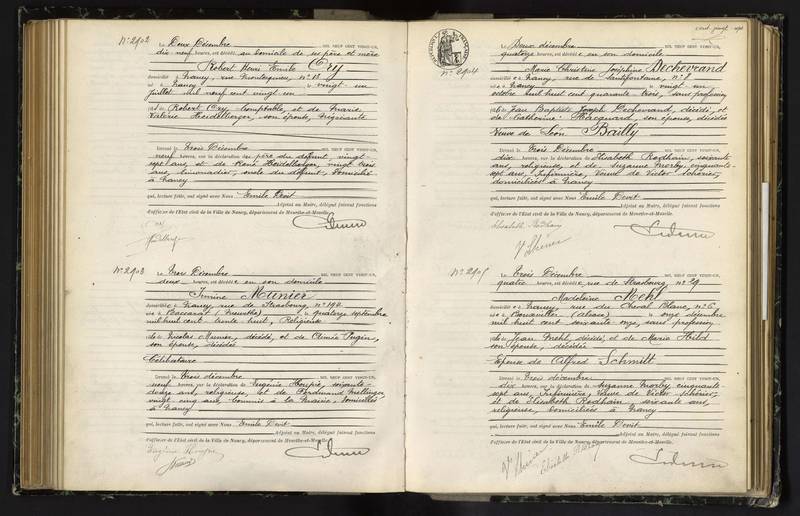 N° 2902
Le Deux Décembre MIL NEUF CENT VINGT-UN,
dix neuf heures, est décédé au domicile de ses père et mère
Robert Henri Emile Cry
domicilié à Nancy, rue Montesquieu, n° 18
né à Nancy le vingt un
juillet mil neuf cent vingt un
fils de Robert Cry, Comptable, et de Marie
Valérie Heidelberger, son épouse, Négociante
Dressé le Trois Décembre MIL NEUF CENT VINGT-UN,
neuf heures, sur la déclaration du père du défunt, vingt
sept ans, et de René Heidelberger, vingt trois
ans, limonadier, oncle du défunt, domiciliés
à Nancy
qui, lecture faite, ont signé avec Nous Emile Devit
Adjoint au Maire, délégué faisant fonctions
d'officier de l'Etat civil de la Ville de Nancy, département de Meurthe-et-Moselle.
N° 2903
Le Trois Décembre MIL NEUF CENT VINGT-UN,
deux heures, est décédée en son domicile
Irmine Munier
domiciliée à Nancy, rue de Strasbourg, n° 194
née à Baccarat (Meurthe) le quatorze septembre
mil huit cent trente huit, Religieuse
fille de Nicolas Munier, décédé, et de Aimée Pugin,
son épouse, décédée
Célibataire
Dressé le Trois décembre MIL NEUF CENT VINGT-UN,
neuf heures, sur la déclaration de Eugénie Houpié, soixante-
douze ans, religieuse, et de Ferdinand Mellinger,
vingt cinq ans, Commis à la Mairie, domiciliés
à Nancy
qui, lecture faite, ont signé avec Nous Emile Devit
Adjoint au Maire, délégué faisant fonctions
d'officier de l'Etat civil de la Ville de Nancy, département de Meurthe-et-Moselle.
N° 2904
Le Deux décembre MIL NEUF CENT VINGT-UN,
quatorze heures, est décédée en son domicile
Marie Christine Joséphine Dechevrand
domiciliée à Nancy, rue de Santifontaine, n° 8
née à Nancy le vingt un
octobre mil huit cent quarante trois, sans profession
fille de Jean Baptiste Joseph Dechevrand, décédé, et
de Catherine Macquard, son épouse, décédée
Veuve de Léon Bailly
Dressé le Trois Décembre MIL NEUF CENT VINGT-UN,
dix heures, sur la déclaration de Elisabeth Rodhain, soixante
ans, religieuse, et de Suzanne Morby, cinquante-
sept ans, Infirmière, Veuve de Victor Schérier,
domiciliées à Nancy
qui, lecture faite, ont signé avec Nous Emile Devit
Adjoint au Maire, délégué faisant fonctions
d'officier de l'Etat civil de la Ville de Nancy, département de Meurthe-et-Moselle.
Elisabeth Rodhain
N° 2905
Le Trois Décembre MIL NEUF CENT VINGT-UN,
quatre heures, est décédée, rue de Strasbourg, n° 29
Madeleine Mehl
domiciliée à Nancy, rue du Cheval Blanc, n° 6
née à Bouxwiller (Alsace) le onze décembre
mil huit cent soixante onze, sans profession
fille de Jean Mehl, décédé, et de Marie Hild
son épouse, décédée
Epouse de Alfred Schmitt
Dressé le Trois décembre MIL NEUF CENT VINGT-UN,
dix heures, sur la déclaration de Suzanne Morby, cinquante
sept ans, Infirmière, Veuve de Victor Schérier,
et de Elisabeth Rodhain, soixante ans,
religieuse, domiciliées à Nancy
qui, lecture faite, ont signé avec Nous Emile Devit
Adjoint au Maire, délégué faisant fonctions
d'officier de l'Etat civil de la Ville de Nancy, département de Meurthe-et-Moselle.